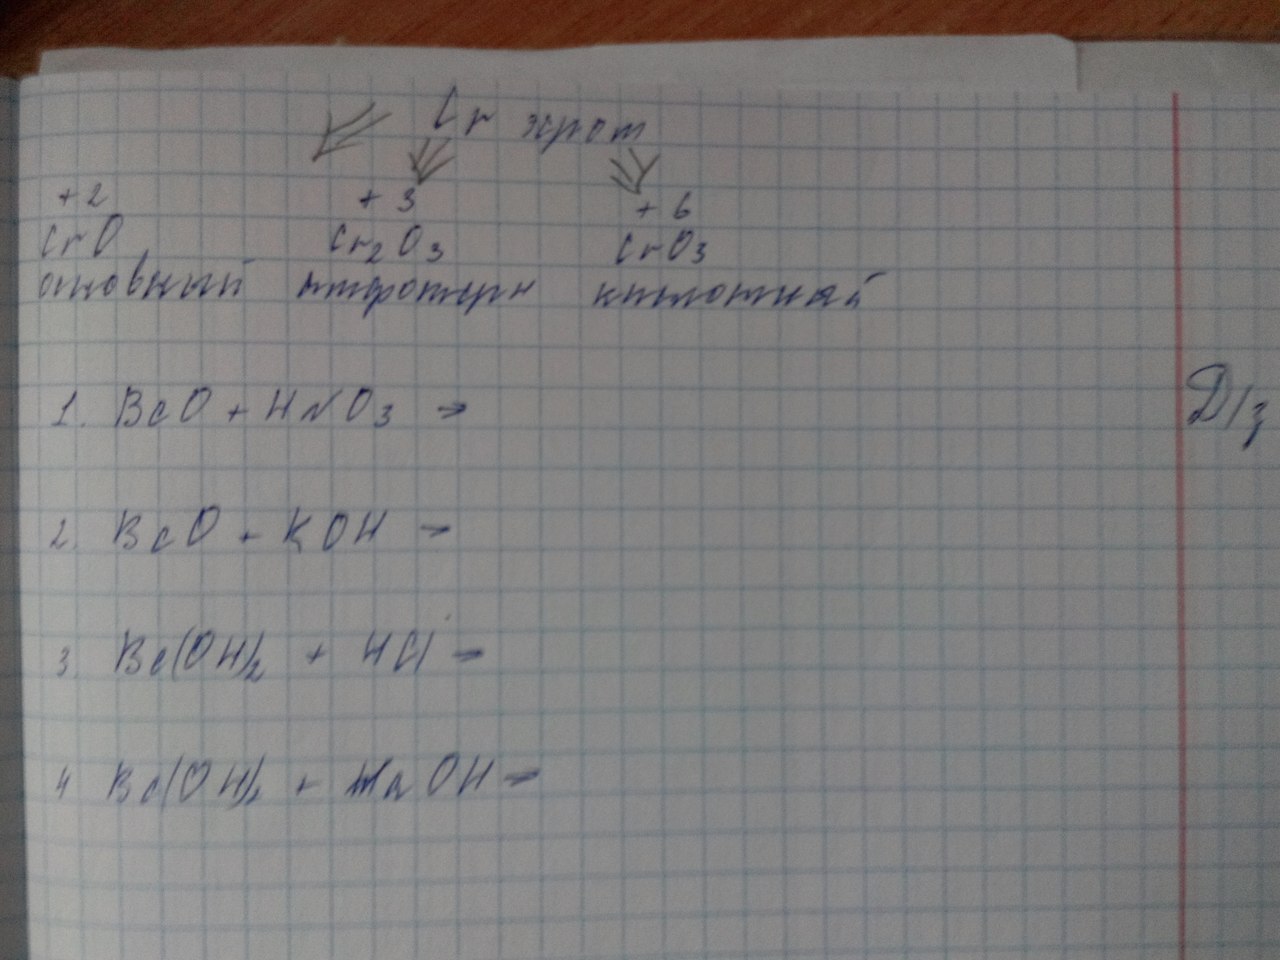 Cr хром
+2 +3 +6
CrO Cr₂O₃ CrO₃
основный амфотерн кислотный
1. BeO + HNO₃ →
Д/з
2. BeO + KOH →
3. Be(OH)₂ + HCl →
4 Be(OH)₂ + NaOH →